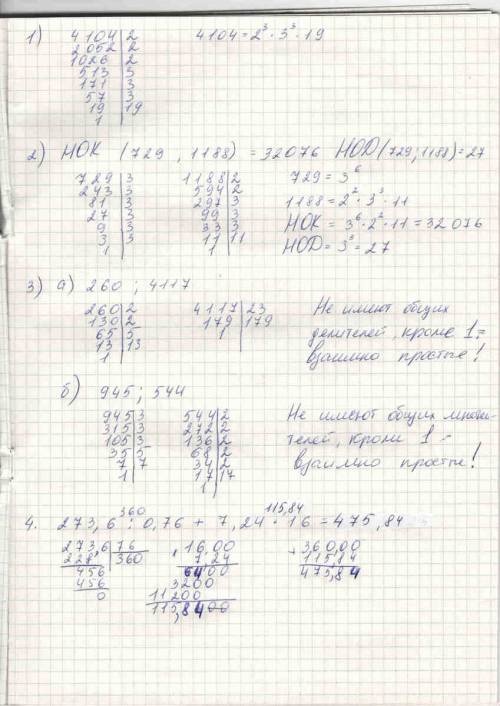 1) 4104|2 4104 = 2³·3³·19
2052|2
1026|2
513|3
171|3
57|3
19|19
1
2) НОК (729, 1188) = 32076 НОD(729; 1188) = 27
729|3 1188|2 729 = 3⁶
243|3 594|2 1188 = 2²·3³·11
81|3 297|3 НОК = 3⁶·2²·11 = 32076
27|3 99|3 НОD = 3³ = 27
9|3 33|3
3|3 11|11
1 1
3) а) 260; 4117
260|2 4117|23 Не имеют общих
130|2 179|179 делителей, кроме 1 =
65|5 1 взаимно простые!
13|13
1
б) 945; 544
945|3 544|2 Не имеют общих множи-
315|3 272|2 телей, кроме 1 =
105|3 136|2 взаимно простые!
35|5 68|2
7|7 34|2
1 17|17
1
360 115,84
4. 273,6 : 0,76 + 7,24 · 16 = 475,84
273,6|76 16,00 + 360,00
228 |360 7,24 115,84
456 6400 475,84
456 3200
0 11200
115,8400